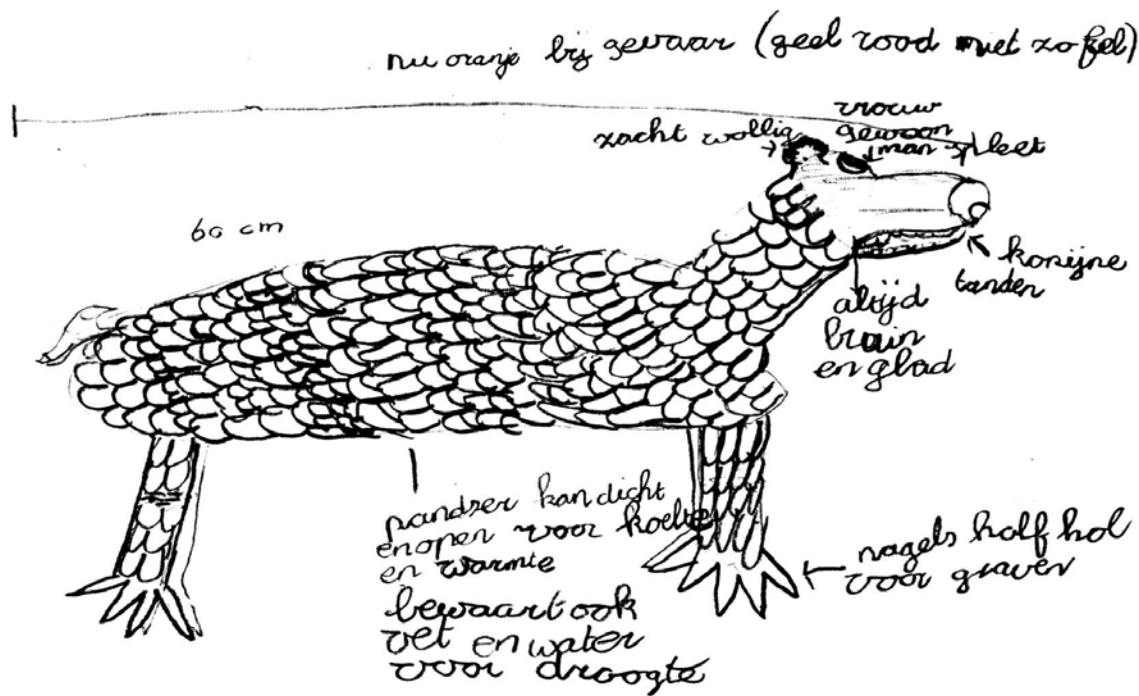 nu oranje bij gevaar (geel rood niet zo fel)
zacht wollig
vrouw
gewoon
man spleet
60 cm
konijne
tanden
altijd
bruin
en glad
pandser kan dicht
en open voor koelte
en warmte
bewaart ook
vet en water
voor droogte
nagels half hol
voor graven